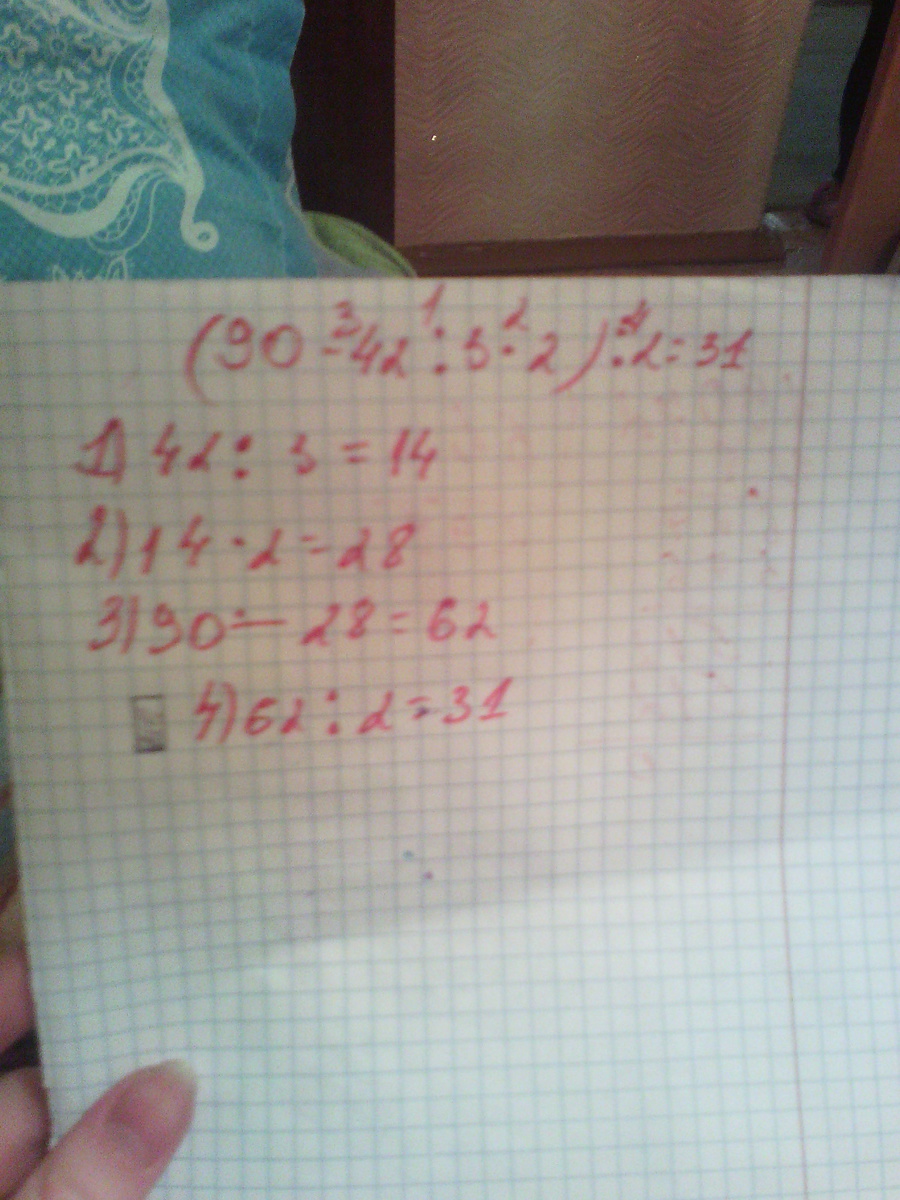 (90 - 42 : 3 · 2) : 2 = 31
1) 42 : 3 = 14
2) 14 · 2 = 28
3) 90 — 28 = 62
4) 62 : 2 = 31